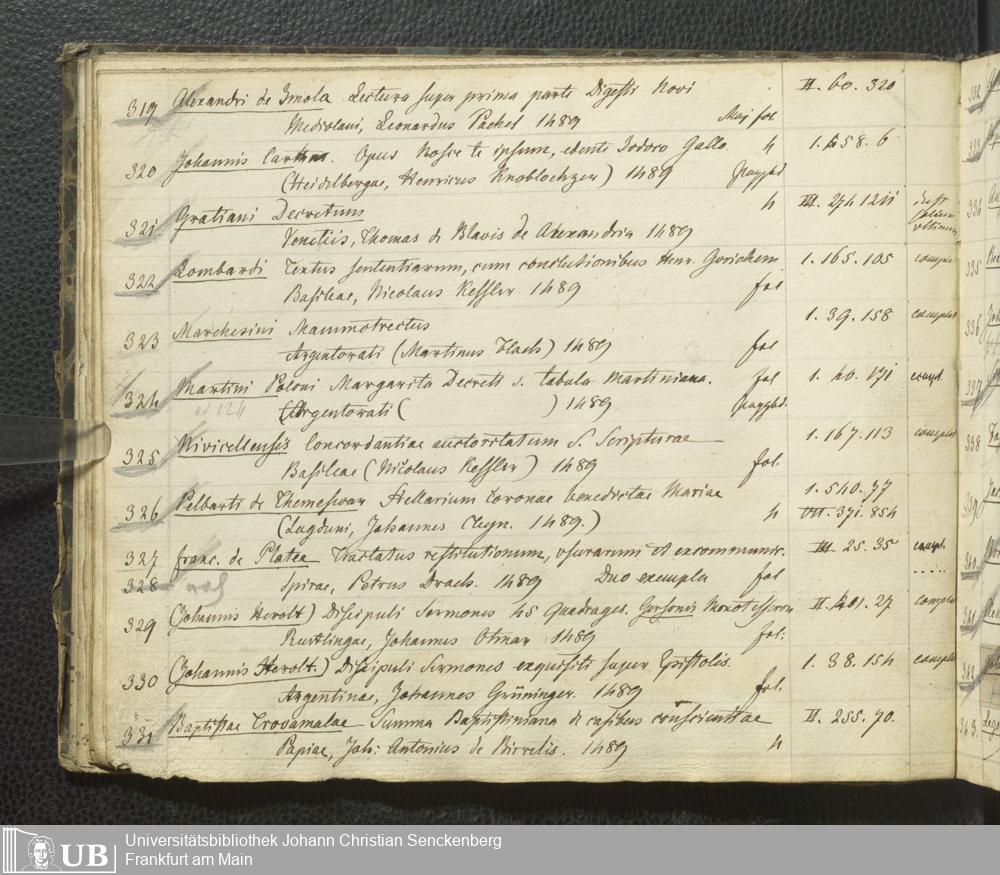 319 Alexandri de Imola Lectura super prima parte Digesti Novi II. 60. 320
Mediolani, Leonardus Pachel 1489 Maj fol
320 Johannis Carthus. Opus Nosce te ipsum, edente Jodoco Gallo 4 1. 658. 6
(Heidelbergae, Henricus Knoblochzer) 1489
321 Gratiani Decretum 4 III. 274 1211
Venetiis, Thomas de Blavis de Alexandria 1489
322 Lombardi Textus sententiarum, cum conclutionibus Henr. Gorichem 1. 165. 105 complet
Basileae, Nicolaus Kessler 1489 fol
323 Marchesini Mammotrectus 1. 39. 158 complet
Argentorati (Martinus Flach) 1489 fol
324 Martini Poloni Margarita Decreti s. tabula Martiniana. fol 1. 40. 171 compl.
Argentorati ( ) 1489
325 Nivicellensis Concordantiae auctoritatum S. Scripturae 1. 167. 113 complet
Basileae (Nicolaus Kessler) 1489 fol.
326 Pelbarti de Themeswar Stellarium Coronae benedictae Mariae 1. 540. 77
(Lugduni, Johannes Cleyn. 1489.) 4 VII. 371. 854
327 franc. de Platea Tractatus restitutionum, usurarum et excommunic. III. 25. 35 compl.
328 Spirae, Petrus Drach. 1489 Duo exempla fol .....
329 (Johannis Herolt) Discipuli Sermones 45 quadrages. Gersonis Monotessaron II. 401. 27 complet
Reutlingae, Johannes Otmar 1489 fol:
330 (Johannis Herolt.) Discipuli Sermones exquisiti super Epistolis. 1. 38. 154 complet
Argentinae, Johannes Grüninger. 1489 fol.
331 Baptistae Trovamalae Summa Baptistiniana de casibus conscientiae II. 255. 70.
Papiae, Joh: Antonius de Birretis. 1489 4
335
336
337
338
340
341
342
343.
UB
Universitätsbibliothek Johann Christian Senckenberg
Frankfurt am Main